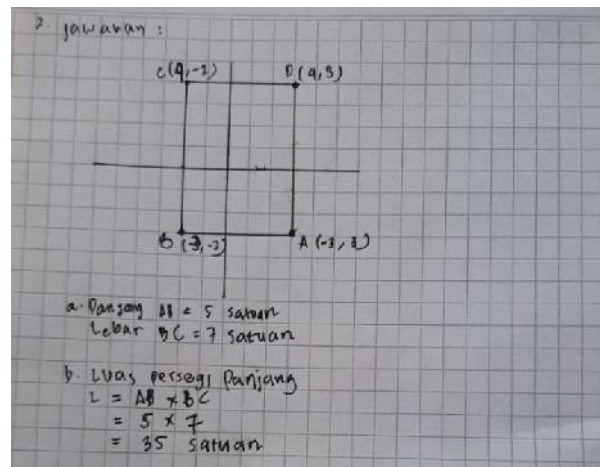 2. Jawaban :
C(4,-2) D(4,3)
B (-3,-2) A (-3, 3)
a. Panjang AB = 5 satuan
Lebar BC = 7 satuan
b. Luas persegi Panjang
L = AB × BC
= 5 × 7
= 35 satuan